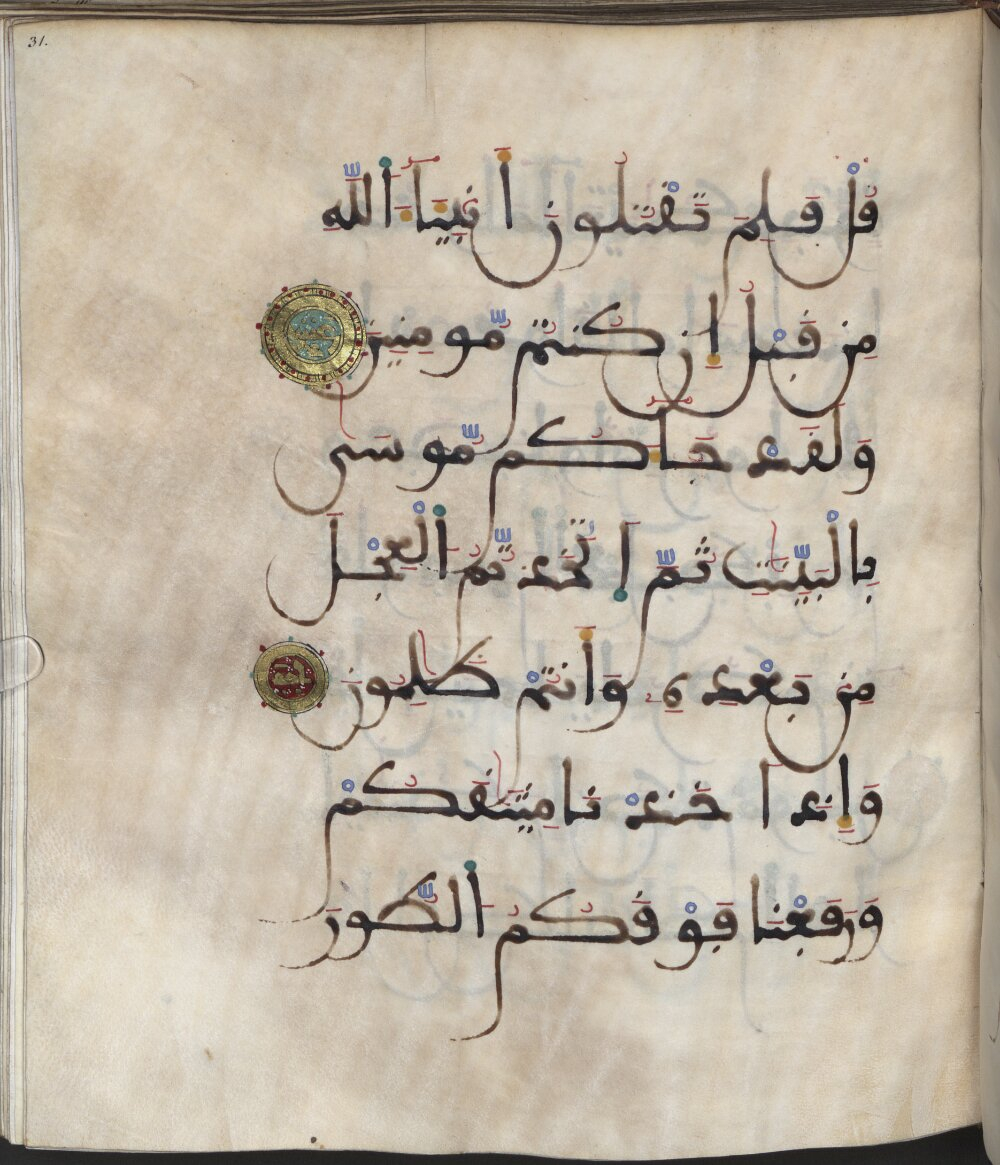 31.
قُلْ فَلِمَ تَقْتُلُونَ أَنۢبِئَآءَ اَ۬للَّهِ
مِن قَبْلُ إِن كُنتُم مُّومِنِينَ
وَلَقَدْ جَآءَكُم مُّوسَىٰ
بِالْبَيِّنَٰتِ ثُمَّ اَ۪تَّخَذتُّمُ اُ۬لْعِجْلَ
مِنۢ بَعْدِهِۦ وَأَنتُمْ ظَٰلِمُونَ
وَإِذَ اَخَذْنَا مِيثَٰقَكُمْ
وَرَفَعْنَا فَوْقَكُمُ اُ۬لطُّورَ